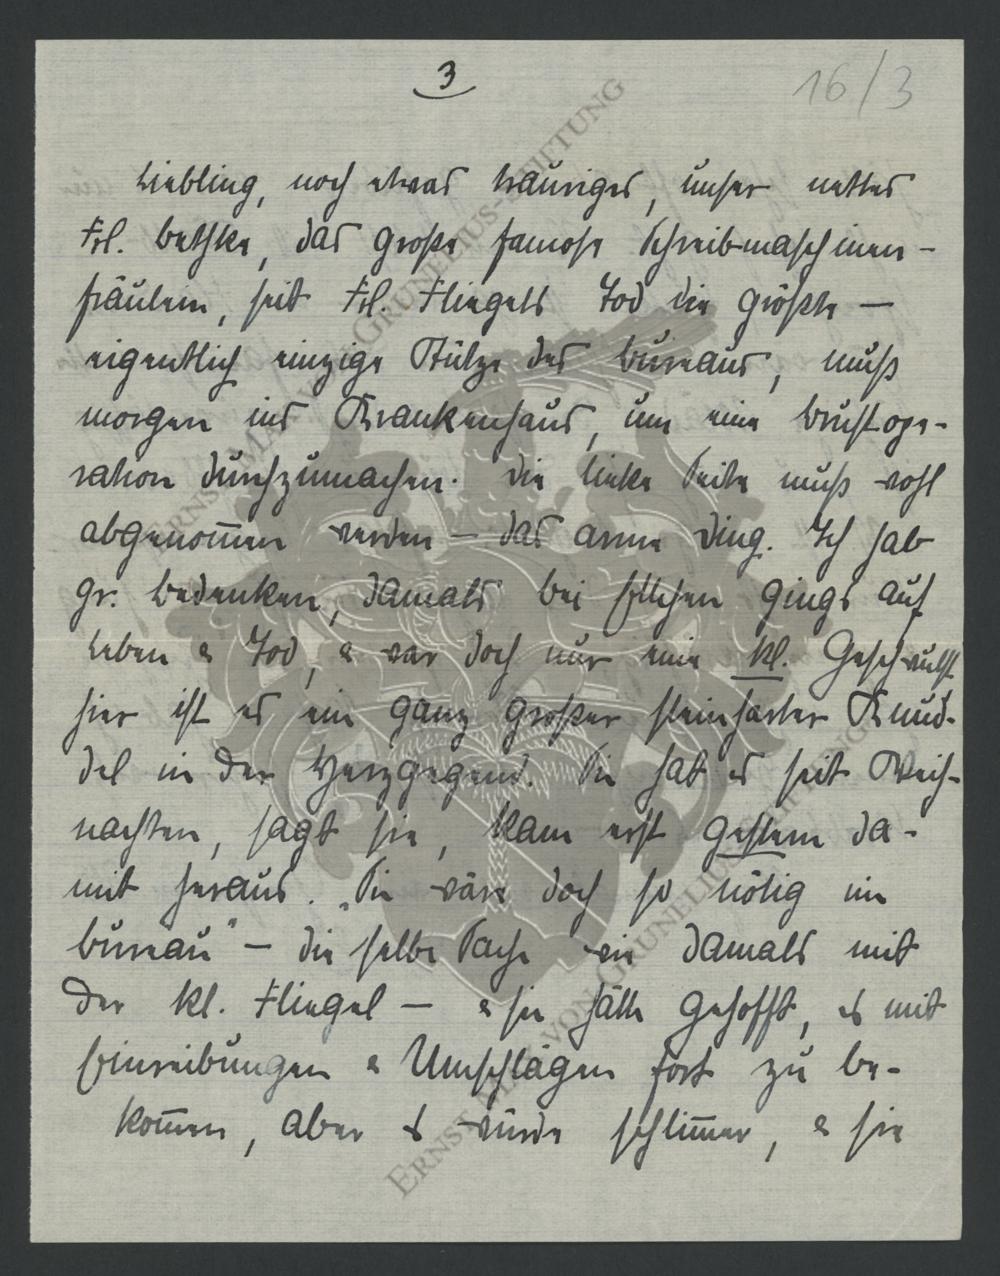 3
16/3
Liebling, noch etwas trauriges, unser nettes
Frl. Bethke, das große famose Schreibmaschinen-
fräulein, seit Frl. Fliegels Tod die größte —
eigentlich einzige Stütze des Bureaus, muß
morgen ins Krankenhaus, um eine Brustope-
ration durchzumachen. Die linke Seite muß wohl
abgenom̄en werden — das arme Ding. Ich hab
gr. Bedenken, damals bei gings auf
Leben & Tod, & war doch nur eine kl. Geschwulst
hier ist es ein ganz großer steinharter Knud-
del in der Herzgegend. Sie hat es seit Weih-
nachten, sagt sie, kam erst gestern da-
mit heraus. „Sie wäre doch so nötig im
Bureau" — dieselbe Sache wie damals mit
der kl. Fliegel — & sie hätte gehofft, es mit
Einreibungen & Umschlägen fort zu be-
kom̄en, aber es würde schlim̄er, & sie
ERNST MAX VON GRUNELIUS-STIFTUNG
ERNST MAX VON GRUNELIUS-STIFTUNG